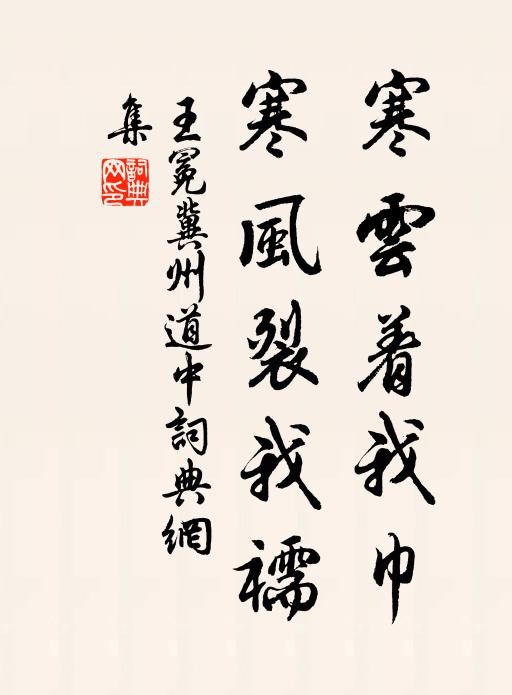 寒雲着我巾
寒風裂我襦
王冕冀州道中詞典網
集
詞典網印